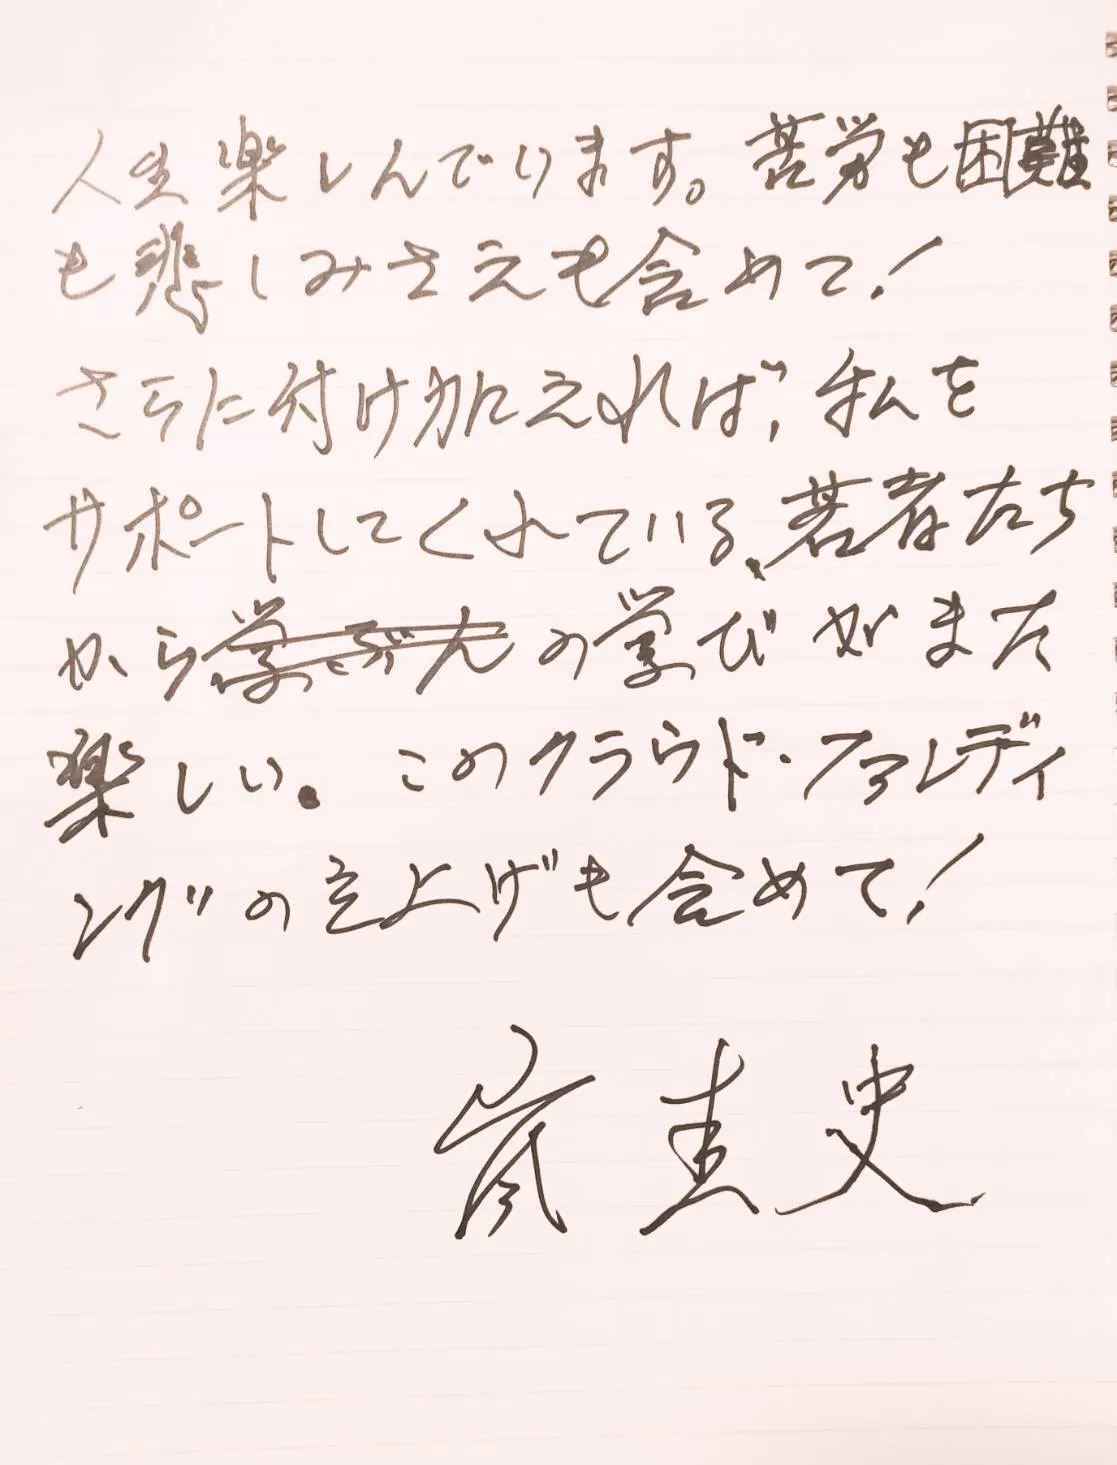 人生楽しんでいます。苦労も困難
も悲しみさえも含めて!
さらに付け加えれば、私を
サポートしてくれている、若者たち
からの学びがまた
楽しい。このクラウド・ファンディ
ングの立上げも含めて!
嵐圭史